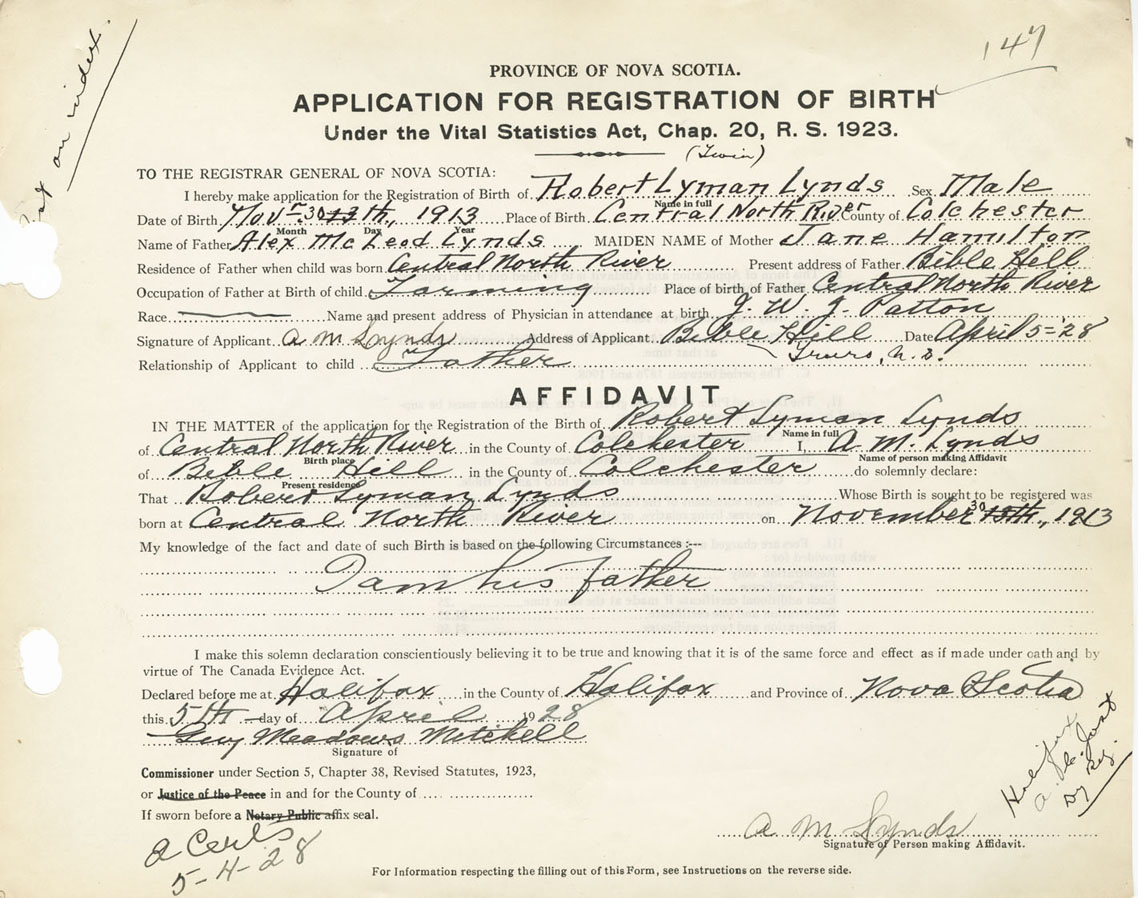 147
on index.
PROVINCE OF NOVA SCOTIA.
APPLICATION FOR REGISTRATION OF BIRTH
Under the Vital Statistics Act, Chap. 20, R. S. 1923.
(Twin)
TO THE REGISTRAR GENERAL OF NOVA SCOTIA:
I hereby make application for the Registration of Birth of Robert Lyman Lynds Sex Male
Name in full
Date of Birth Nov. 30 13th, 1913 Place of Birth Central North River County of Colchester
Month Day Year
Name of Father Alex McLeod Lynds MAIDEN NAME of Mother Jane Hamilton
Residence of Father when child was born Central North River Present address of Father Bible Hill
Occupation of Father at Birth of child Farming Place of birth of Father Central North River
Race Name and present address of Physician in attendance at birth J. W. J. Patton
Signature of Applicant A M Lynds Address of Applicant Bible Hill Date April 5-'28
Truro, N.S.
Relationship of Applicant to child Father
AFFIDAVIT
IN THE MATTER of the application for the Registration of the Birth of Robert Lyman Lynds
Name in full
of Central North River in the County of Colchester I, A. M. Lynds
Birth place Name of person making Affidavit
of Bible Hill in the County of Colchester do solemnly declare:
Present residence
That Robert Lyman Lynds Whose Birth is sought to be registered was
born at Central North River on November 30 13th, 1913
My knowledge of the fact and date of such Birth is based on the following Circumstances :---
I am his father
I make this solemn declaration conscientiously believing it to be true and knowing that it is of the same force and effect as if made under oath and by
virtue of The Canada Evidence Act.
Declared before me at Halifax in the County of Halifax and Province of Nova Scotia
this 5th day of April 1928
Guy Meadows Mitchell
Signature of
Commissioner under Section 5, Chapter 38, Revised Statutes, 1923,
or Justice of the Peace in and for the County of
If sworn before a Notary Public affix seal.
A Certs
5-4-28
Halifax
A M Lynds
Signature of Person making Affidavit.
For Information respecting the filling out of this Form, see Instructions on the reverse side.